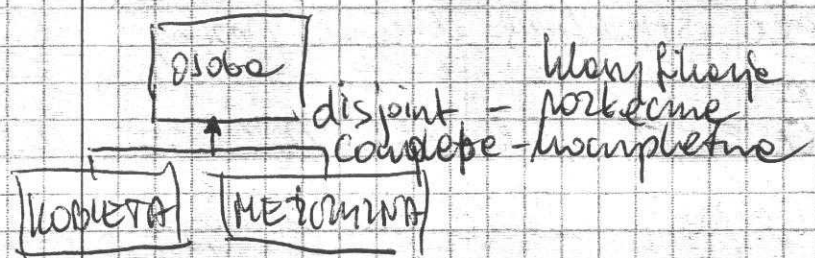 osoba
klasyfikacje
disjoint - rozłączne
complete - kompletne
KOBIETA
MĘŻCZYZNA